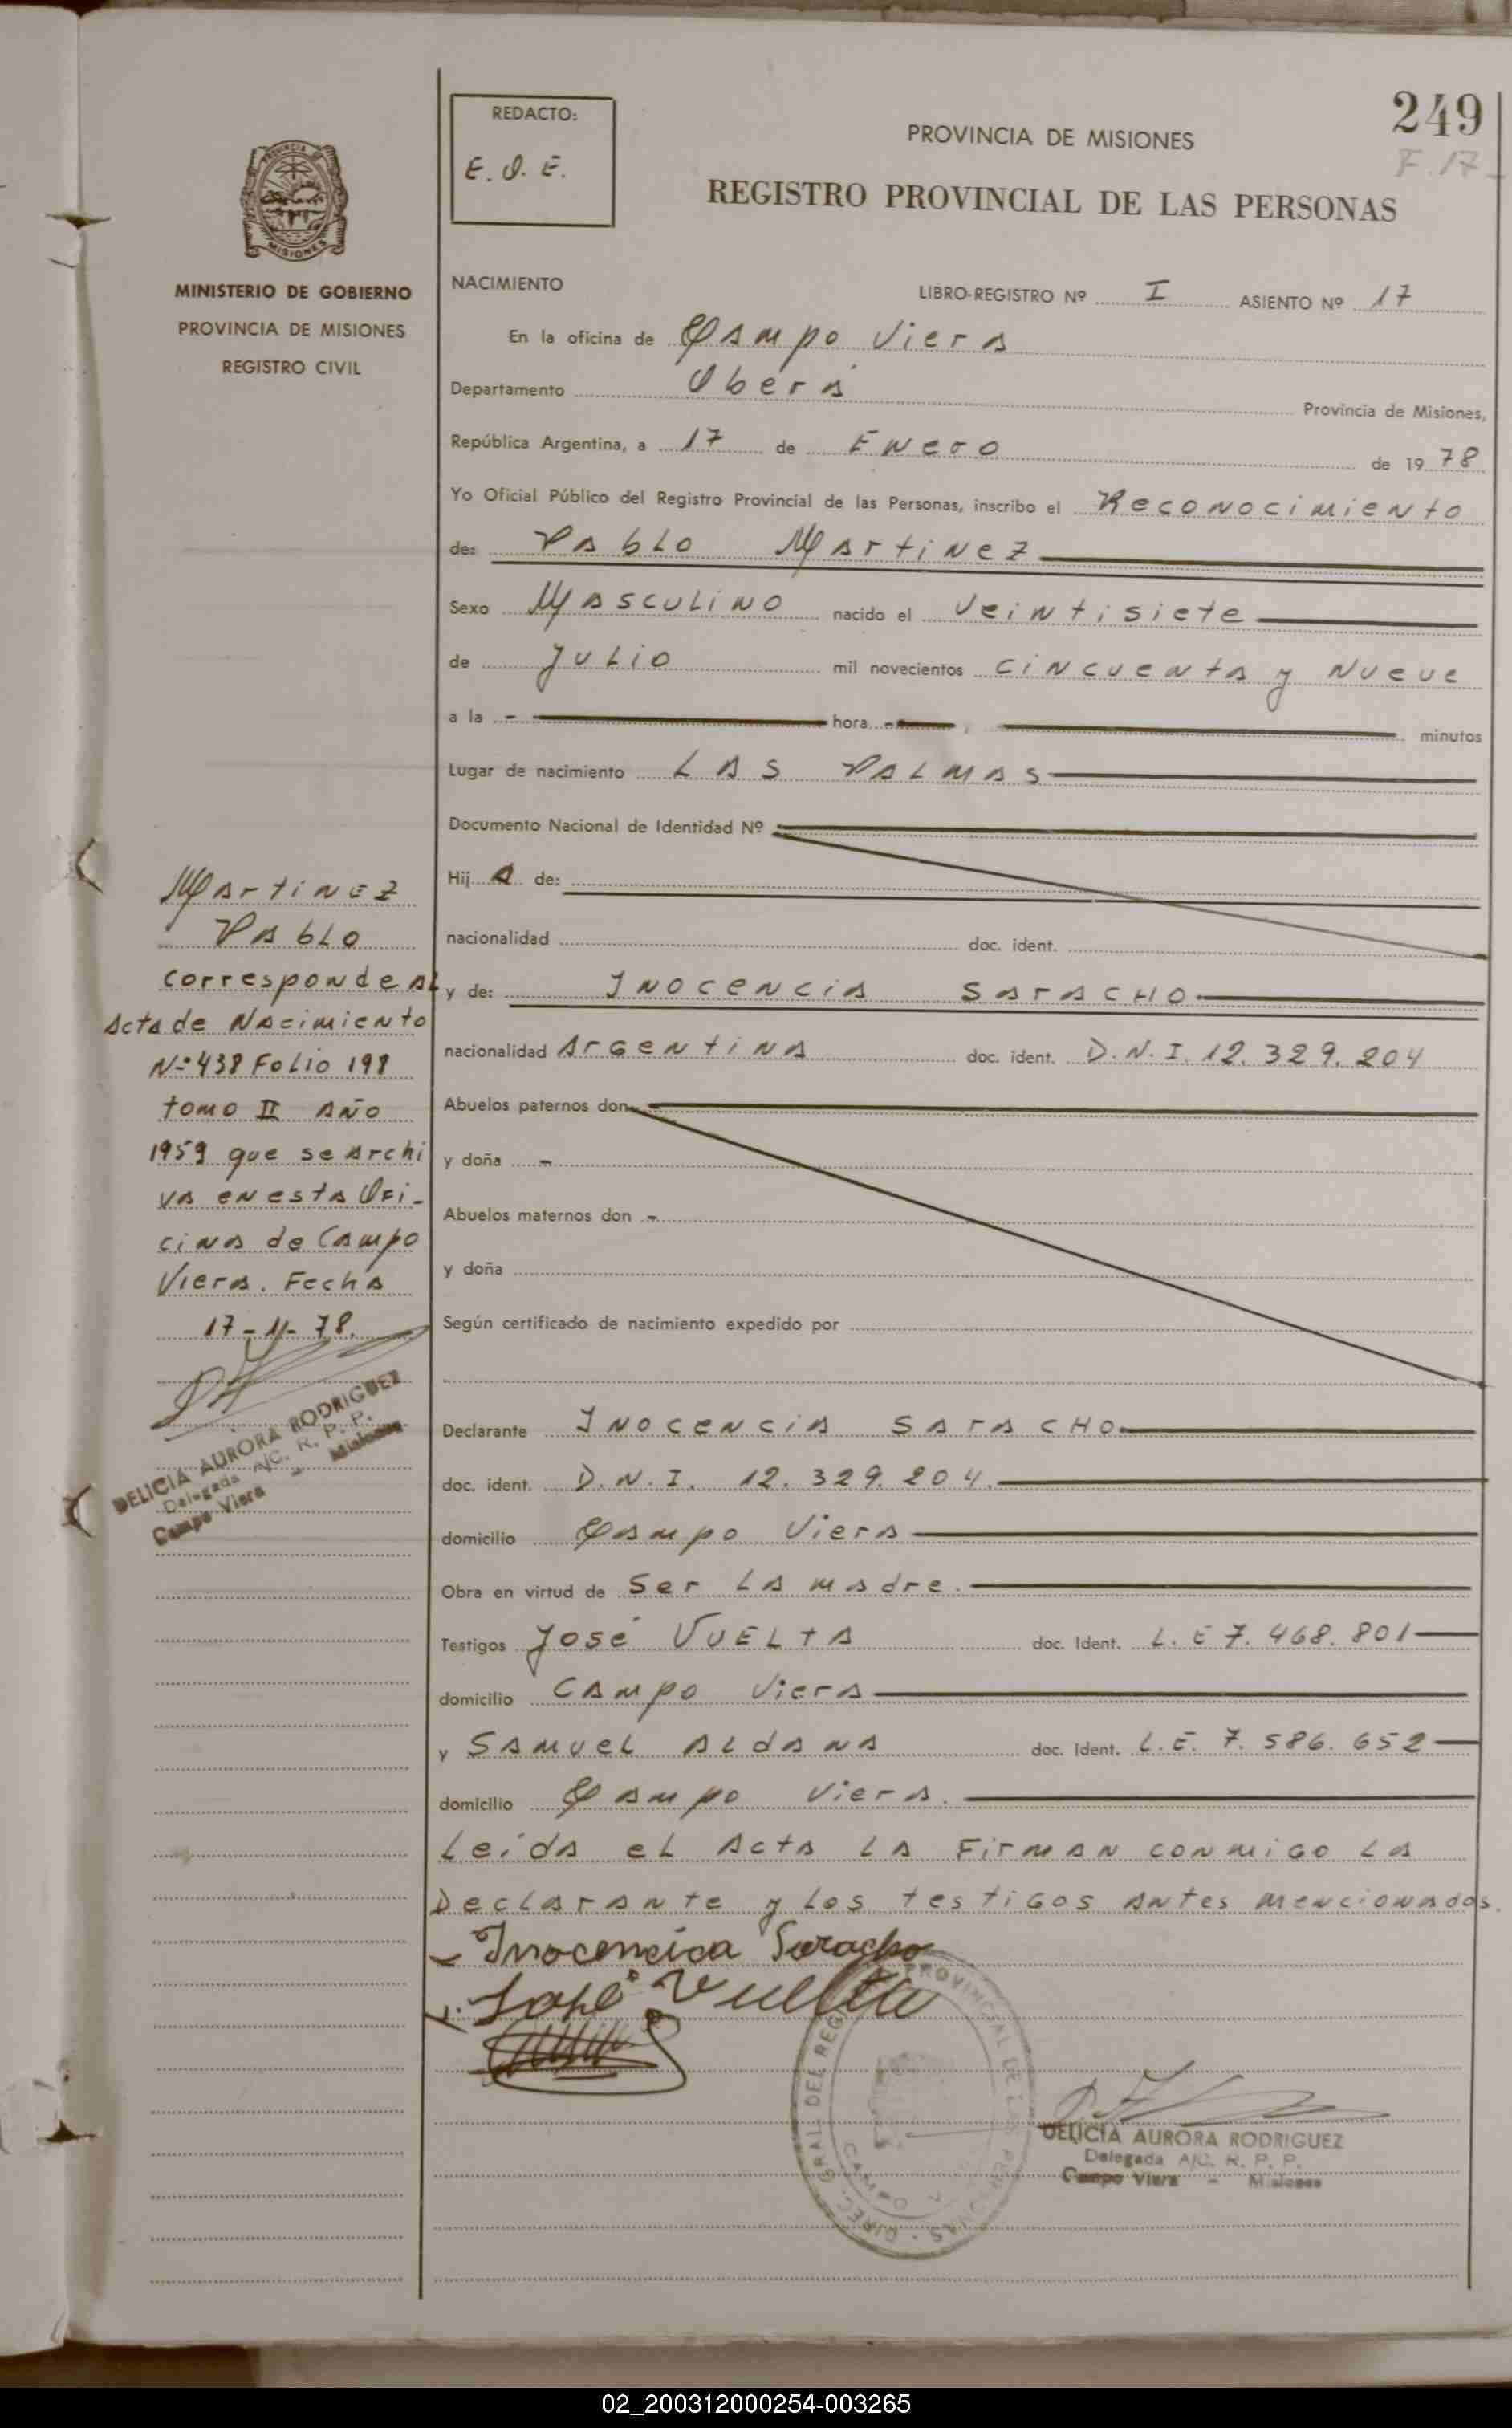 249
F. 17
REDACTO:
E. O. E.
PROVINCIA DE MISIONES
REGISTRO PROVINCIAL DE LAS PERSONAS
MINISTERIO DE GOBIERNO
PROVINCIA DE MISIONES
REGISTRO CIVIL
NACIMIENTO
LIBRO-REGISTRO Nº I ASIENTO Nº 17
En la oficina de Campo Viera
Departamento Oberá Provincia de Misiones,
República Argentina, a 17 de Enero de 19 78
Yo Oficial Público del Registro Provincial de las Personas, inscribo el Reconocimiento
de: Pablo Martinez
Sexo Masculino nacido el Veintisiete
de Julio mil novecientos cincuenta y Nueve
a la - hora - , minutos
Lugar de nacimiento LAS PALMAS
Documento Nacional de Identidad Nº
Hij o de:
nacionalidad doc. ident.
y de: Inocencia SARACHO
nacionalidad Argentina doc. ident. D.N.I. 12.329.204
Abuelos paternos don
y doña -
Abuelos maternos don -
y doña
Según certificado de nacimiento expedido por
Declarante Inocencia SARACHO
doc. ident. D.N.I. 12.329.204.
domicilio Campo Viera
Obra en virtud de Ser La madre.
Testigos José VUELTA doc. Ident. L.E 7.468.801
domicilio Campo Viera
y Samuel Aldana doc. Ident. L.E. 7.586.652
domicilio Campo Viera.
Leída el Acta la Firman conmigo la
Declarante y los testigos antes mencionados.
Inocencia Saracho
José Vuelta
DELICIA AURORA RODRIGUEZ
Delegada A/C. R. P. P.
Campo Viera - Misiones
Martinez
Pablo
corresponde al
Acta de Nacimiento
Nº 438 Folio 198
tomo II Año
1959 que se archi
va en esta Ofi-
cina de Campo
Viera. Fecha
17-1-78.
DELICIA AURORA RODRIGUEZ
Delegada A/C. R. P. P.
Campo Viera - Misiones
02_200312000254-003265